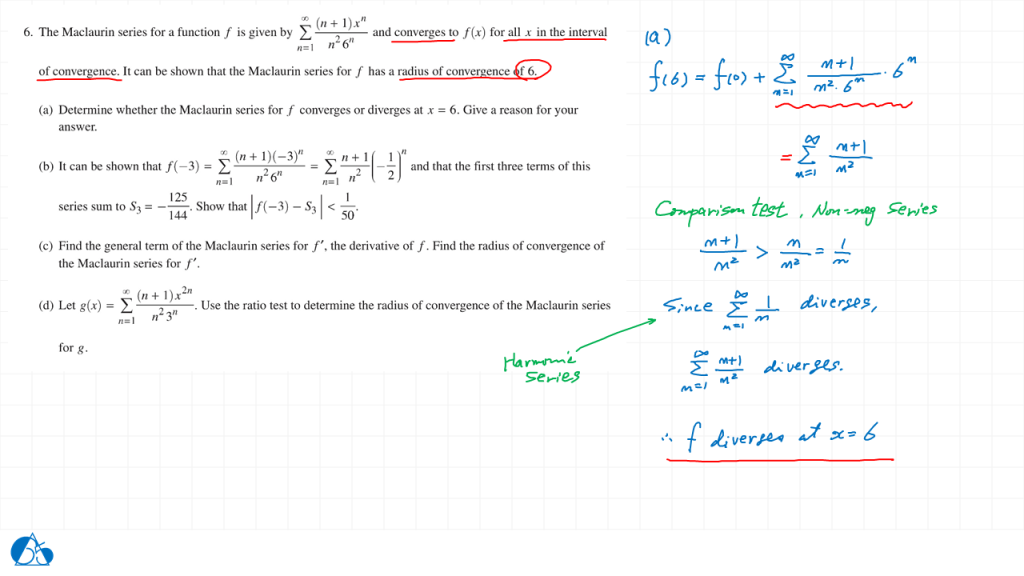 6. The Maclaurin series for a function f is given by $\sum_{n=1}^{\infty} \frac{(n+1)x^n}{n^2 6^n}$ and converges to f(x) for all x in the interval
of convergence. It can be shown that the Maclaurin series for f has a radius of convergence of 6.
(a) Determine whether the Maclaurin series for f converges or diverges at x = 6. Give a reason for your
answer.
(b) It can be shown that $f(-3) = \sum_{n=1}^{\infty} \frac{(n+1)(-3)^n}{n^2 6^n} = \sum_{n=1}^{\infty} \frac{n+1}{n^2}\left(-\frac{1}{2}\right)^n$ and that the first three terms of this
series sum to $S_3 = -\frac{125}{144}$. Show that $\left|f(-3) - S_3\right| < \frac{1}{50}$.
(c) Find the general term of the Maclaurin series for f′, the derivative of f. Find the radius of convergence of
the Maclaurin series for f′.
(d) Let $g(x) = \sum_{n=1}^{\infty} \frac{(n+1)x^{2n}}{n^2 3^n}$. Use the ratio test to determine the radius of convergence of the Maclaurin series
for g.
(a)
$f(6) = f(0) + \sum_{n=1}^{\infty} \frac{n+1}{n^2 \cdot 6^n} \cdot 6^n$
$= \sum_{n=1}^{\infty} \frac{n+1}{n^2}$
Comparison test, Non-neg series
$\frac{n+1}{n^2} > \frac{n}{n^2} = \frac{1}{n}$
Since $\sum_{n=1}^{\infty} \frac{1}{n}$ diverges,
Harmonic
series
$\sum_{n=1}^{\infty} \frac{n+1}{n^2}$ diverges.
∴ f diverges at x=6